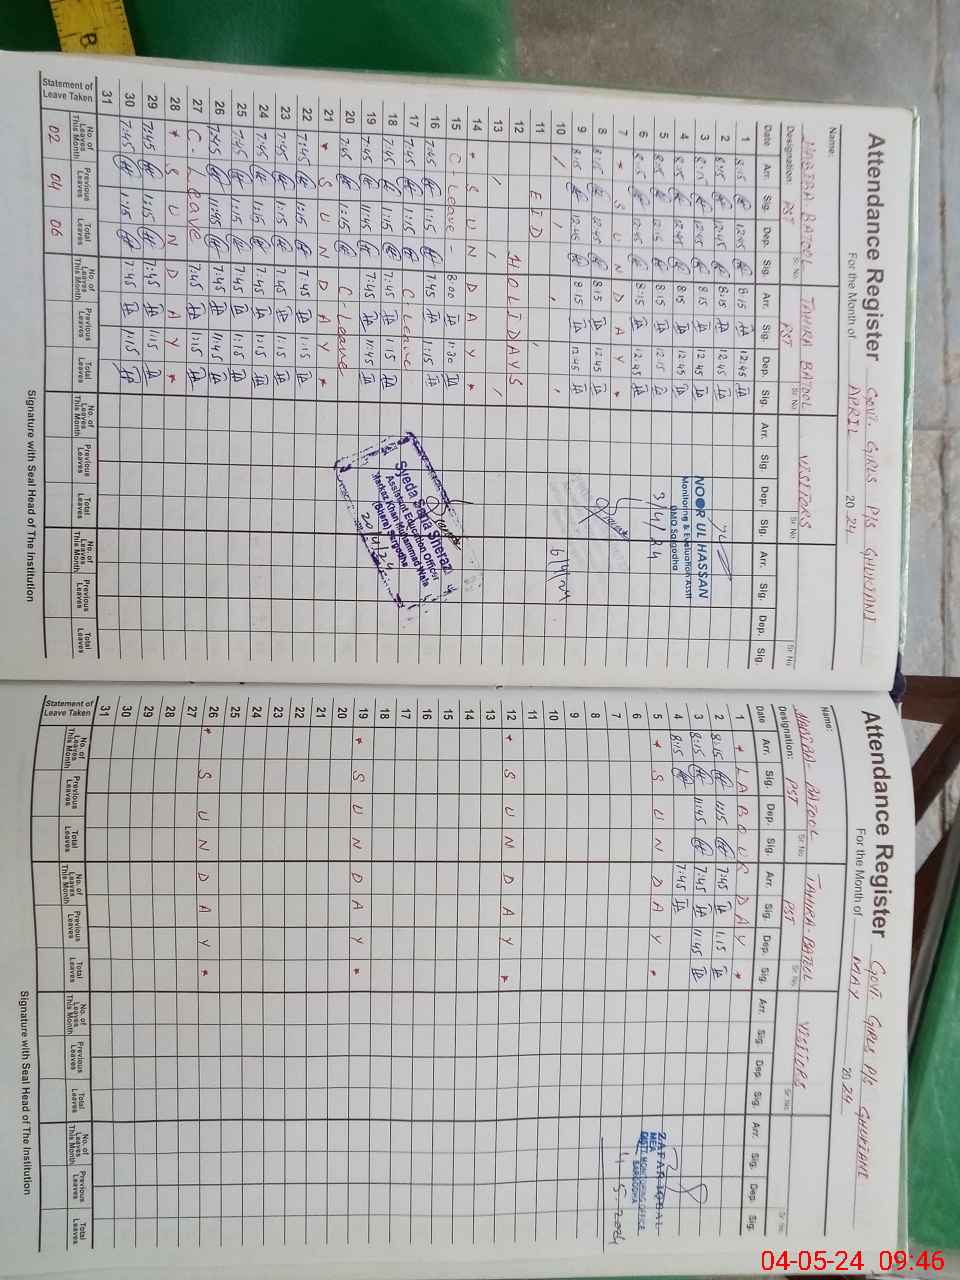 Attendance Register GOVT. GIRLS P/S GHUKIANI
For the Month of APRIL 2024
Name: HAJRA BATOOL TAHIRA BATOOL VISITORS
Sr. No Sr. No Sr. No Sr. No
Designation: PST PST
Date Arr. Sig. Dep. Sig. Arr. Sig. Dep. Sig. Arr. Sig. Dep. Sig. Arr. Sig. Dep. Sig.
1 8:15 12:45 8:15 12:45
2 8:15 12:45 8:15 12:45
3 8:15 12:45 8:15 12:45
4 8:15 12:45 8:15 12:45
5 8:15 12:15 8:15 12:15
6 8:15 12:45 8:15 12:45
7 * SUNDAY *
8 8:15 12:45 8:15 12:45
9 8:15 12:45 8:15 12:45
10
11 EID
12 HOLIDAYS
13
14 * SUNDAY *
15 C-Leave - 8:00 11:30
16 7:45 1:15 7:45 1:15
17 7:45 1:15 C Leave
18 7:45 1:15 7:45 1:15
19 7:45 11:45 7:45 11:45
20 7:45 1:15 C-Leave
21 * SUNDAY *
22 7:45 1:15 7:45 1:15
23 7:45 1:15 7:45 1:15
24 7:45 1:15 7:45 1:15
25 7:45 1:15 7:45 1:15
26 7:45 11:45 7:45 11:45
27 C-Leave 7:45 1:15
28 * SUNDAY *
29 7:45 1:15 7:45 1:15
30 7:45 1:15 7:45 1:15
31
NOOR UL HASSAN
Monitoring & Evaluation Asstt
DMO Sargodha
3/4/24
6/4/24
Syeda Sana Sherazi
Assistant Education Officer
Markaz Khan Muhammad Wala
(Bhera) Sargodha
20/4/24
Statement of Leave Taken
No. of Leaves This Month Previous Leaves Total Leaves No. of Leaves This Month Previous Leaves Total Leaves No. of Leaves This Month Previous Leaves Total Leaves No. of Leaves This Month Previous Leaves Total Leaves
02 04 06
Signature with Seal Head of The Institution
Attendance Register GOVT. GIRLS P/S GHUKIANI
For the Month of MAY 2024
Name: HAJRA-BATOOL TAHIRA-BATUL VISITORS
Sr. No Sr. No Sr. No. Sr. No
Designation: PST PST
Date Arr. Sig. Dep. Sig. Arr. Sig. Dep. Sig. Arr. Sig. Dep. Sig. Arr. Sig. Dep. Sig.
1 * LABOUR DAY *
2 8:15 1:15 7:45 1:15
3 8:15 11:45 7:45 11:45
4 8:15 7:45
5 * SUNDAY *
6
7
8
9
10
11
12 * SUNDAY *
13
14
15
16
17
18
19 * SUNDAY *
20
21
22
23
24
25
26 * SUNDAY *
27
28
29
30
31
ZAFAR IQBAL
MEA
DISTT. MONITORING OFFICE
SARGODHA
4-5-2024
Statement of Leave Taken
No. of Leaves This Month Previous Leaves Total Leaves No. of Leaves This Month Previous Leaves Total Leaves No. of Leaves This Month Previous Leaves Total Leaves No. of Leaves This Month Previous Leaves Total Leaves
Signature with Seal Head of The Institution
8
04-05-24 09:46